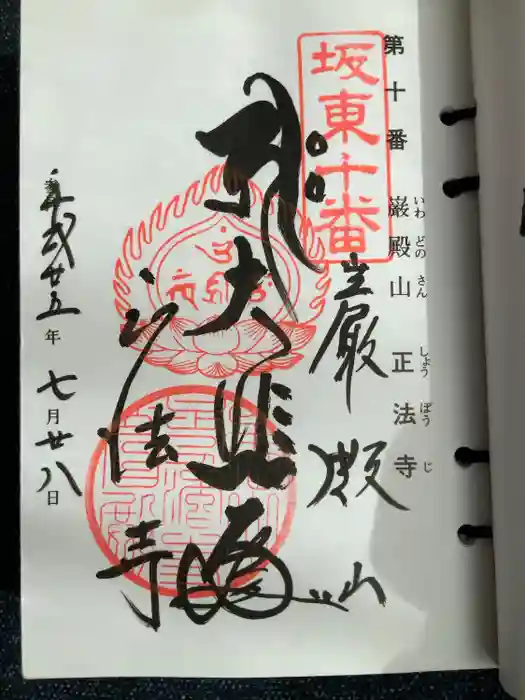 第十番 巌殿山 正法寺
いわ どの さん しょう ぼう じ
坂東十番
巌殿山
大悲殿
正法寺
平成廿五年七月廿八日